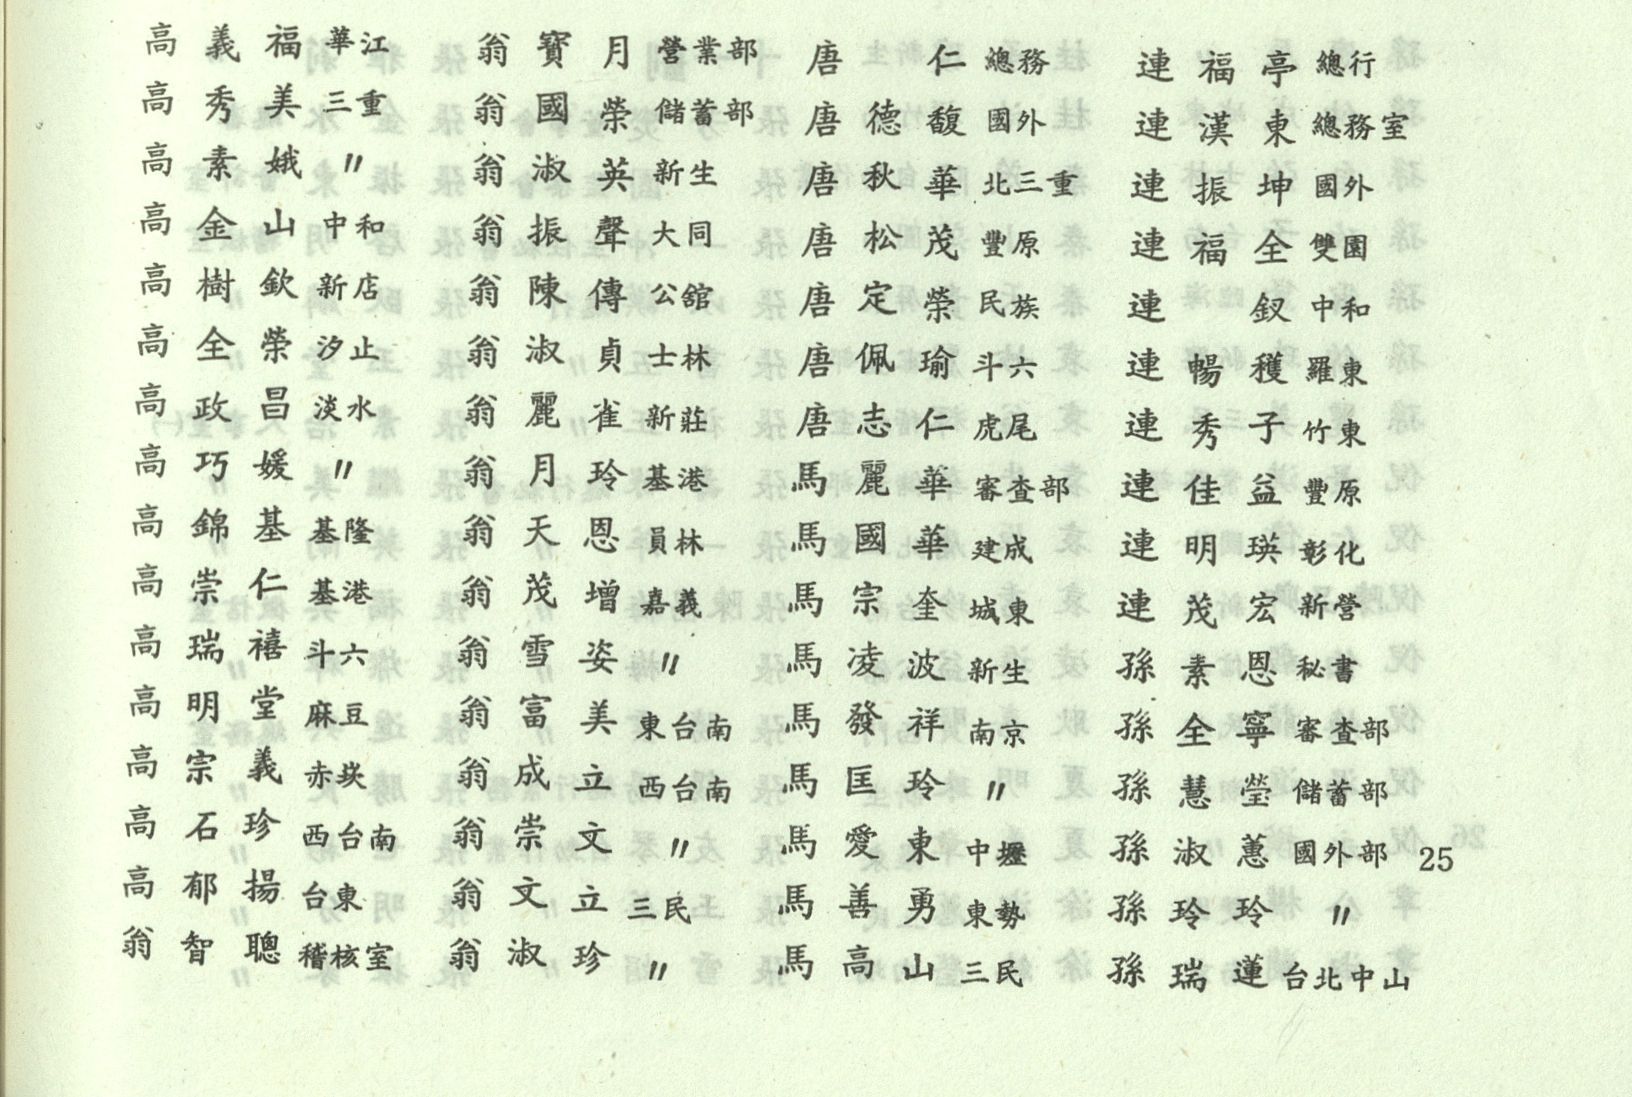 高義福 華江
高秀美 三重
高素娥 〃
高金山 中和
高樹欽 新店
高全榮 汐止
高政昌 淡水
高巧媛 〃
高錦基 基隆
高崇仁 基港
高瑞禧 斗六
高明堂 麻豆
高宗義 赤崁
高石珍 西台南
高郁揚 台東
翁智聰 稽核室
翁寶月 營業部
翁國榮 儲蓄部
翁淑英 新生
翁振聲 大同
翁陳傳 公舘
翁淑貞 士林
翁麗雀 新莊
翁月玲 基港
翁天恩 員林
翁茂增 嘉義
翁雪姿 〃
翁富美 東台南
翁成立 西台南
翁崇文 〃
翁文立 三民
翁淑珍 〃
唐仁 總務
唐德馥 國外
唐秋華 北三重
唐松茂 豐原
唐定榮 民族
唐佩瑜 斗六
唐志仁 虎尾
馬麗華 審查部
馬國華 建成
馬宗奎 城東
馬凌波 新生
馬發祥 南京
馬匡玲 〃
馬愛東 中壢
馬善勇 東勢
馬高山 三民
連福亭 總行
連漢東 總務室
連振坤 國外
連福全 雙園
連釵 中和
連暢穫 羅東
連秀子 竹東
連佳益 豐原
連明瑛 彰化
連茂宏 新營
孫素恩 秘書
孫全寧 審查部
孫慧瑩 儲蓄部
孫淑蕙 國外部
孫玲玲 〃
孫瑞蓮 台北中山
25